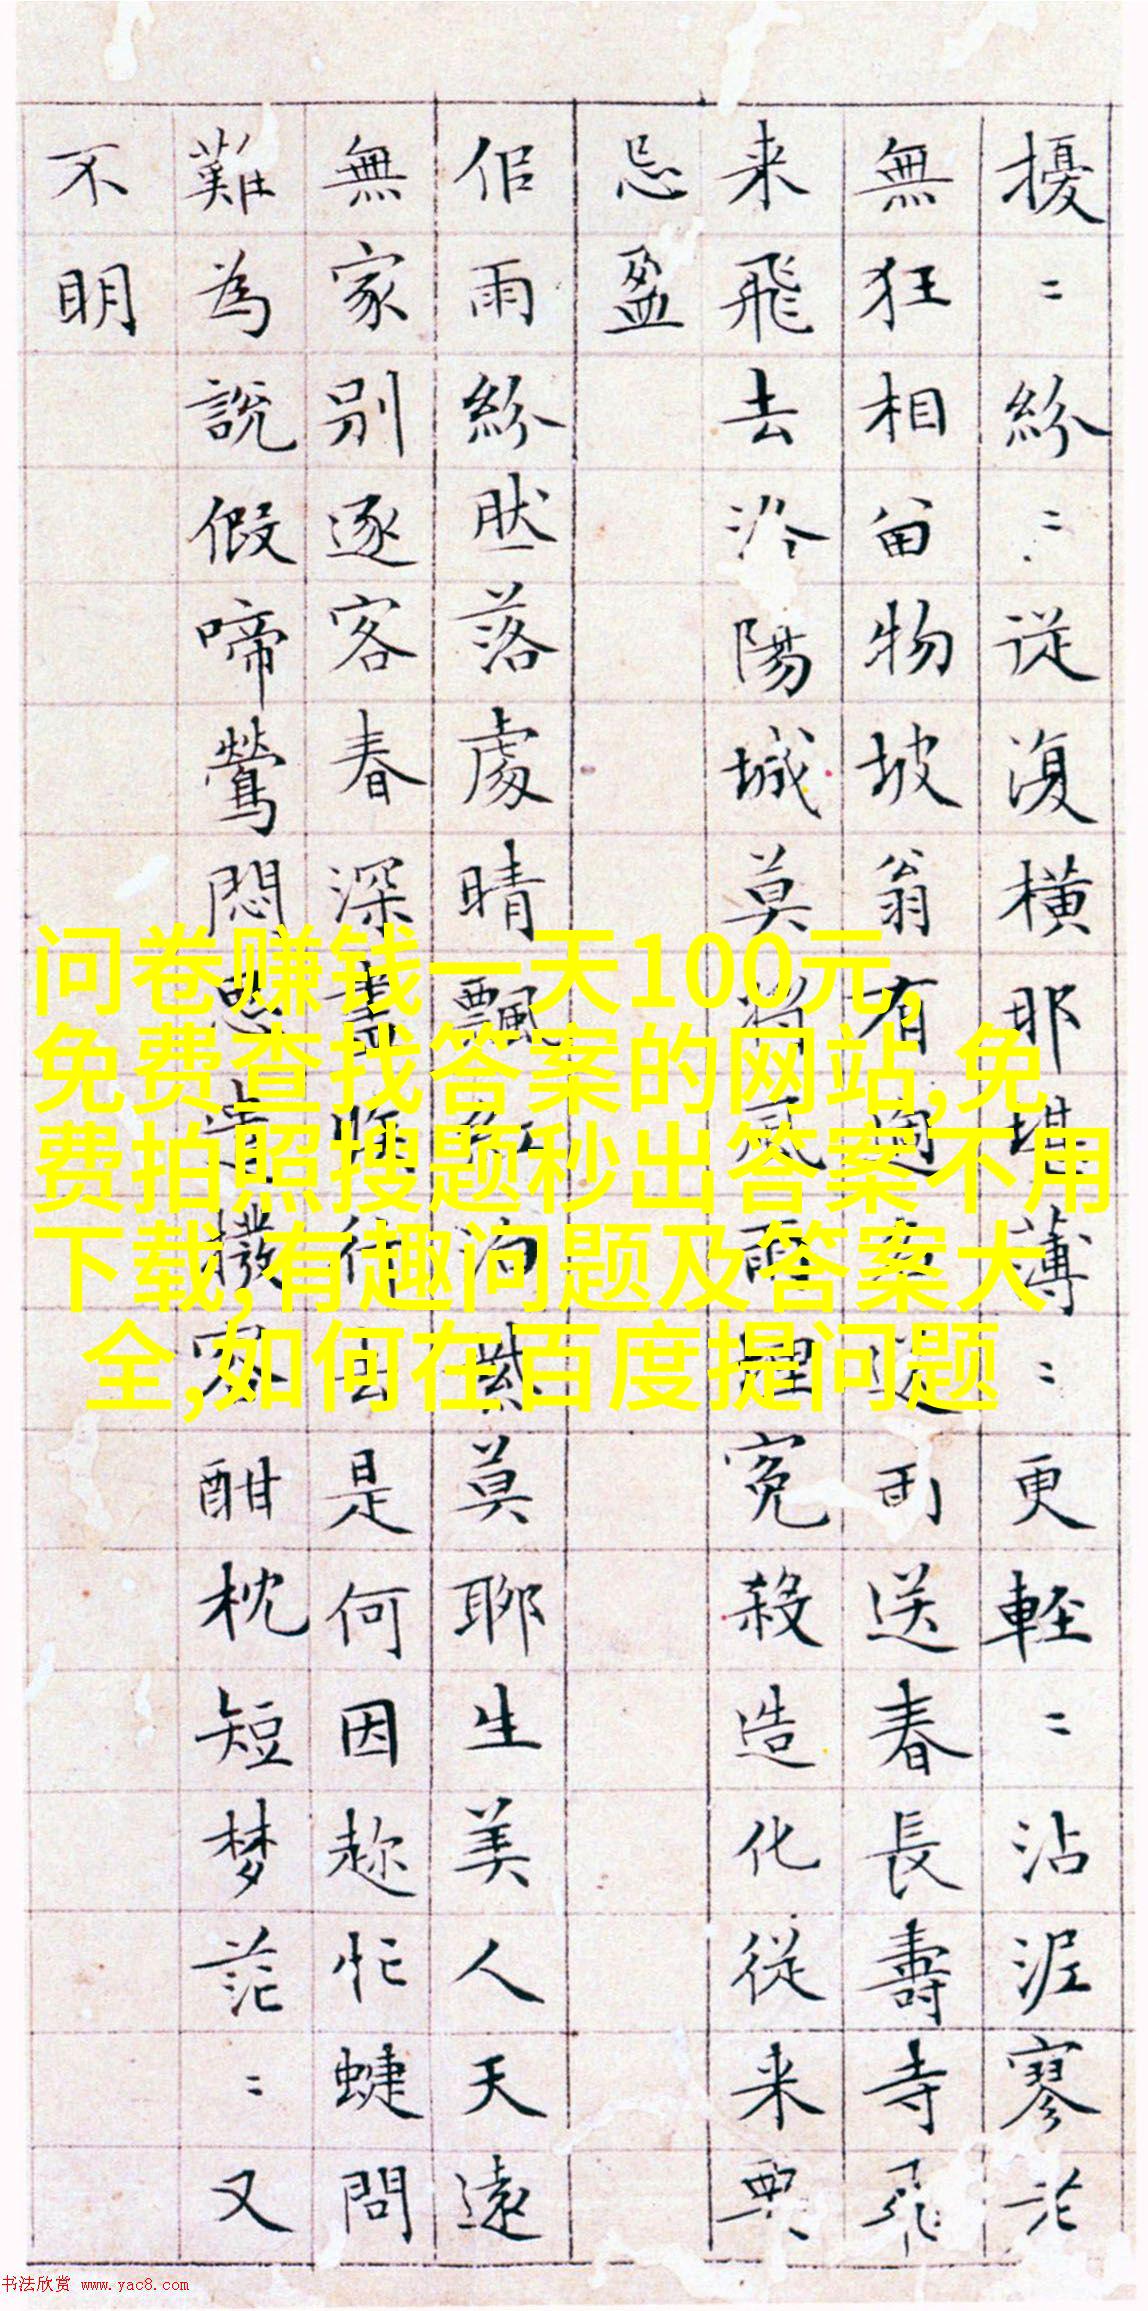 擾〻紛〻從復橫那堪薄〻更輕〻沾泥寥
無狂相留物坡翁有送雨送春長壽寺飛
来飛去洛陽城莫將風雨埋冤殺造化從来要
忌盈
佀雨紛肰落處晴飄紅泊紫莫聊生美人天遠
無家别逐客春深盡族行去是何因趂忙蜨問
難為說假啼鶯悶思遣撥容酣枕短梦茫〻又
不明
问卷赚钱一天100元,
免费查找答案的网站,免
费拍照搜题秒出答案不用
下载,有趣问题及答案大
全,如何在百度提问题
书法欣赏 www.yac8.com